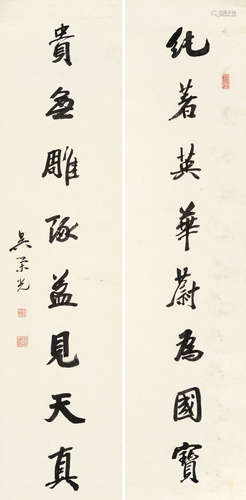 純著英華蔚為國寶
貴無雕琢益見天真
吳榮光